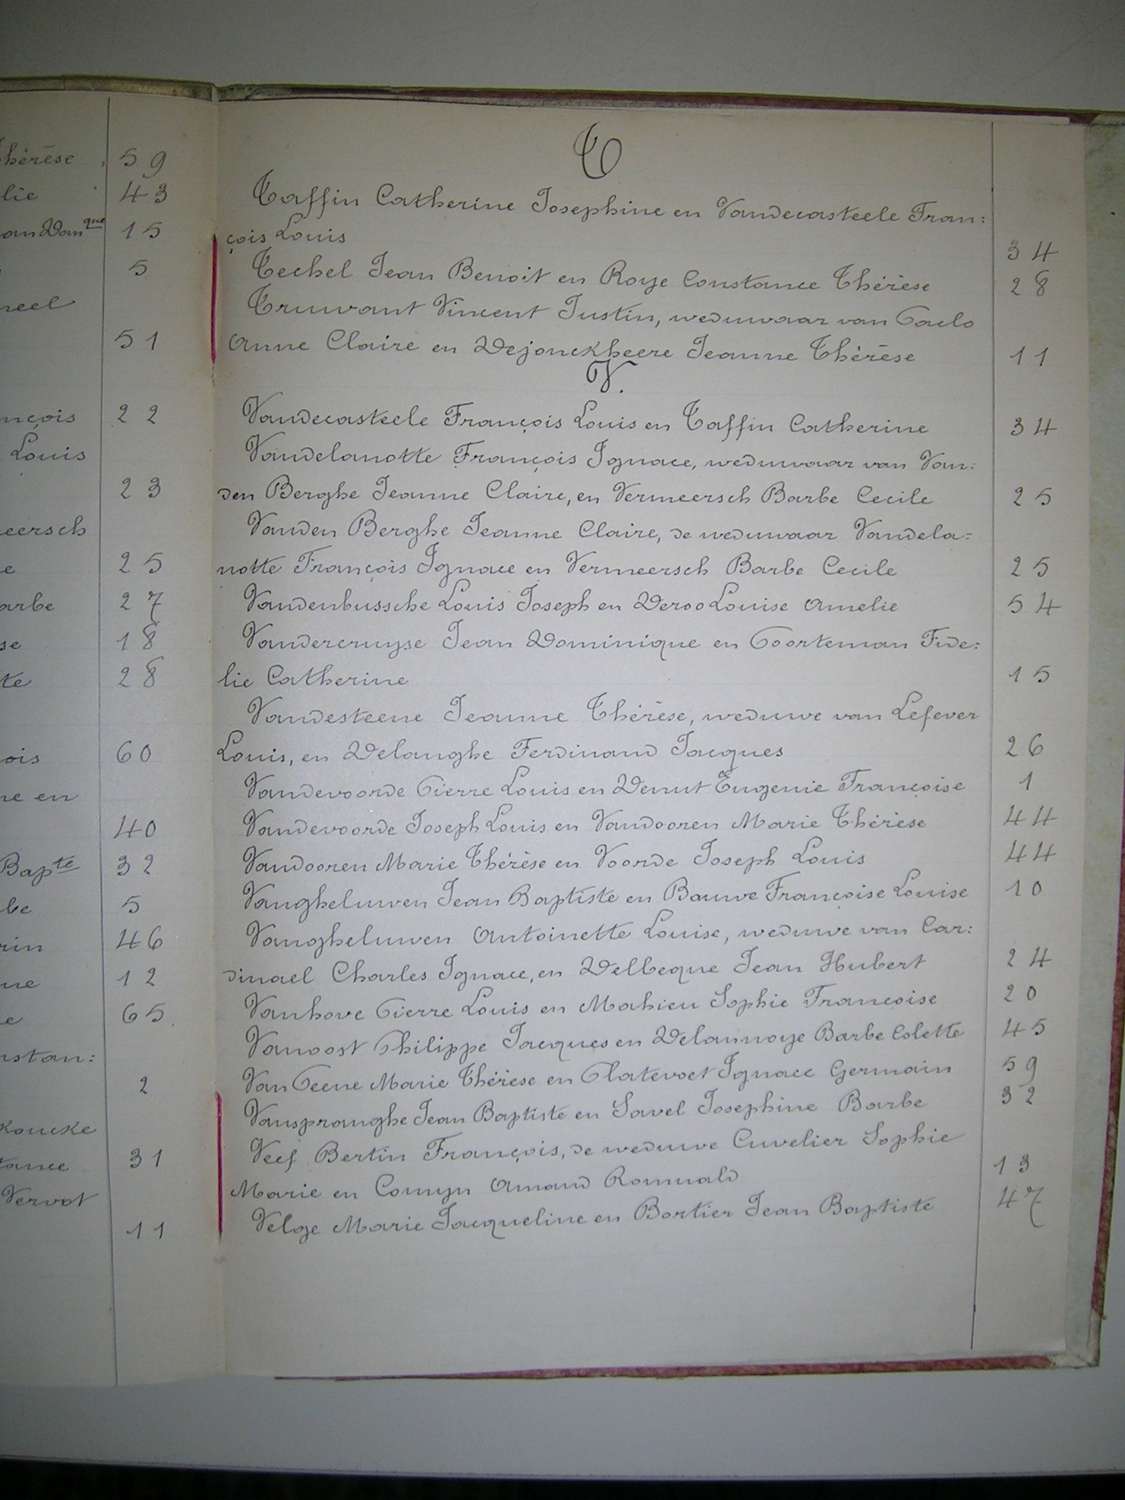 hérèse 59
lie 43
an Domque 15
5
neel
51
nçois 22
Louis
23
eersch
e 25
arbe 27
se 18
te 28
ois 60
ne en
40
Bapte 32
be 5
rin 46
ue 12
e 65
nstan:
2
koucke
tance 31
Vervot
11
T
Taffin Catherine Josephine en Vandecasteele Fran:
çois Louis 34
Techel Jean Benoit en Roye Constance Thérèse 28
Truwant Vincent Justin, weduwaar van Paelo
Anne Claire en Dejonckheere Jeanne Thérèse 11
V.
Vandecasteele François Louis en Taffin Catherine 34
Vandelanotte François Ignace, weduwaar van Van:
den Berghe Jeanne Claire, en Vermeersch Barbe Cecile 25
Vanden Berghe Jeanne Claire, de weduwaar Vandela=
notte François Ignace en Vermeersch Barbe Cecile 25
Vandenbussche Louis Joseph en Deroo Louise Amelie 54
Vandercruyse Jean Dominique en Poorteman Fide:
lie Catherine 15
Vandesteene Jeanne Thérèse, weduwe van Lefever
Louis, en Delanghe Ferdinand Jacques 26
Vandevoorde Pierre Louis en Denut Eugenie Françoise 1
Vandevoorde Joseph Louis en Vandooren Marie Thérèse 44
Vandooren Marie Thérèse en Voorde Joseph Louis 44
Vangheluwen Jean Baptiste en Bauwe Françoise Louise 10
Vangheluwen Antoinette Louise, weduwe van Car:
dinael Charles Ignace, en Delbeque Jean Hubert 24
Vanhove Pierre Louis en Mahieu Sophie Françoise 20
Vanoost Philippe Jacques en Delannoye Barbe Colette 45
Van Peene Marie Thérèse en Platevoet Ignace Germain 59
Vanspranghe Jean Baptiste en Savel Josephine Barbe 32
Veef Bertin François, de weduwe Cuvelier Sophie
Marie en Comyn Amand Romuald 13
Velge Marie Jacqueline en Bortier Jean Baptiste 47